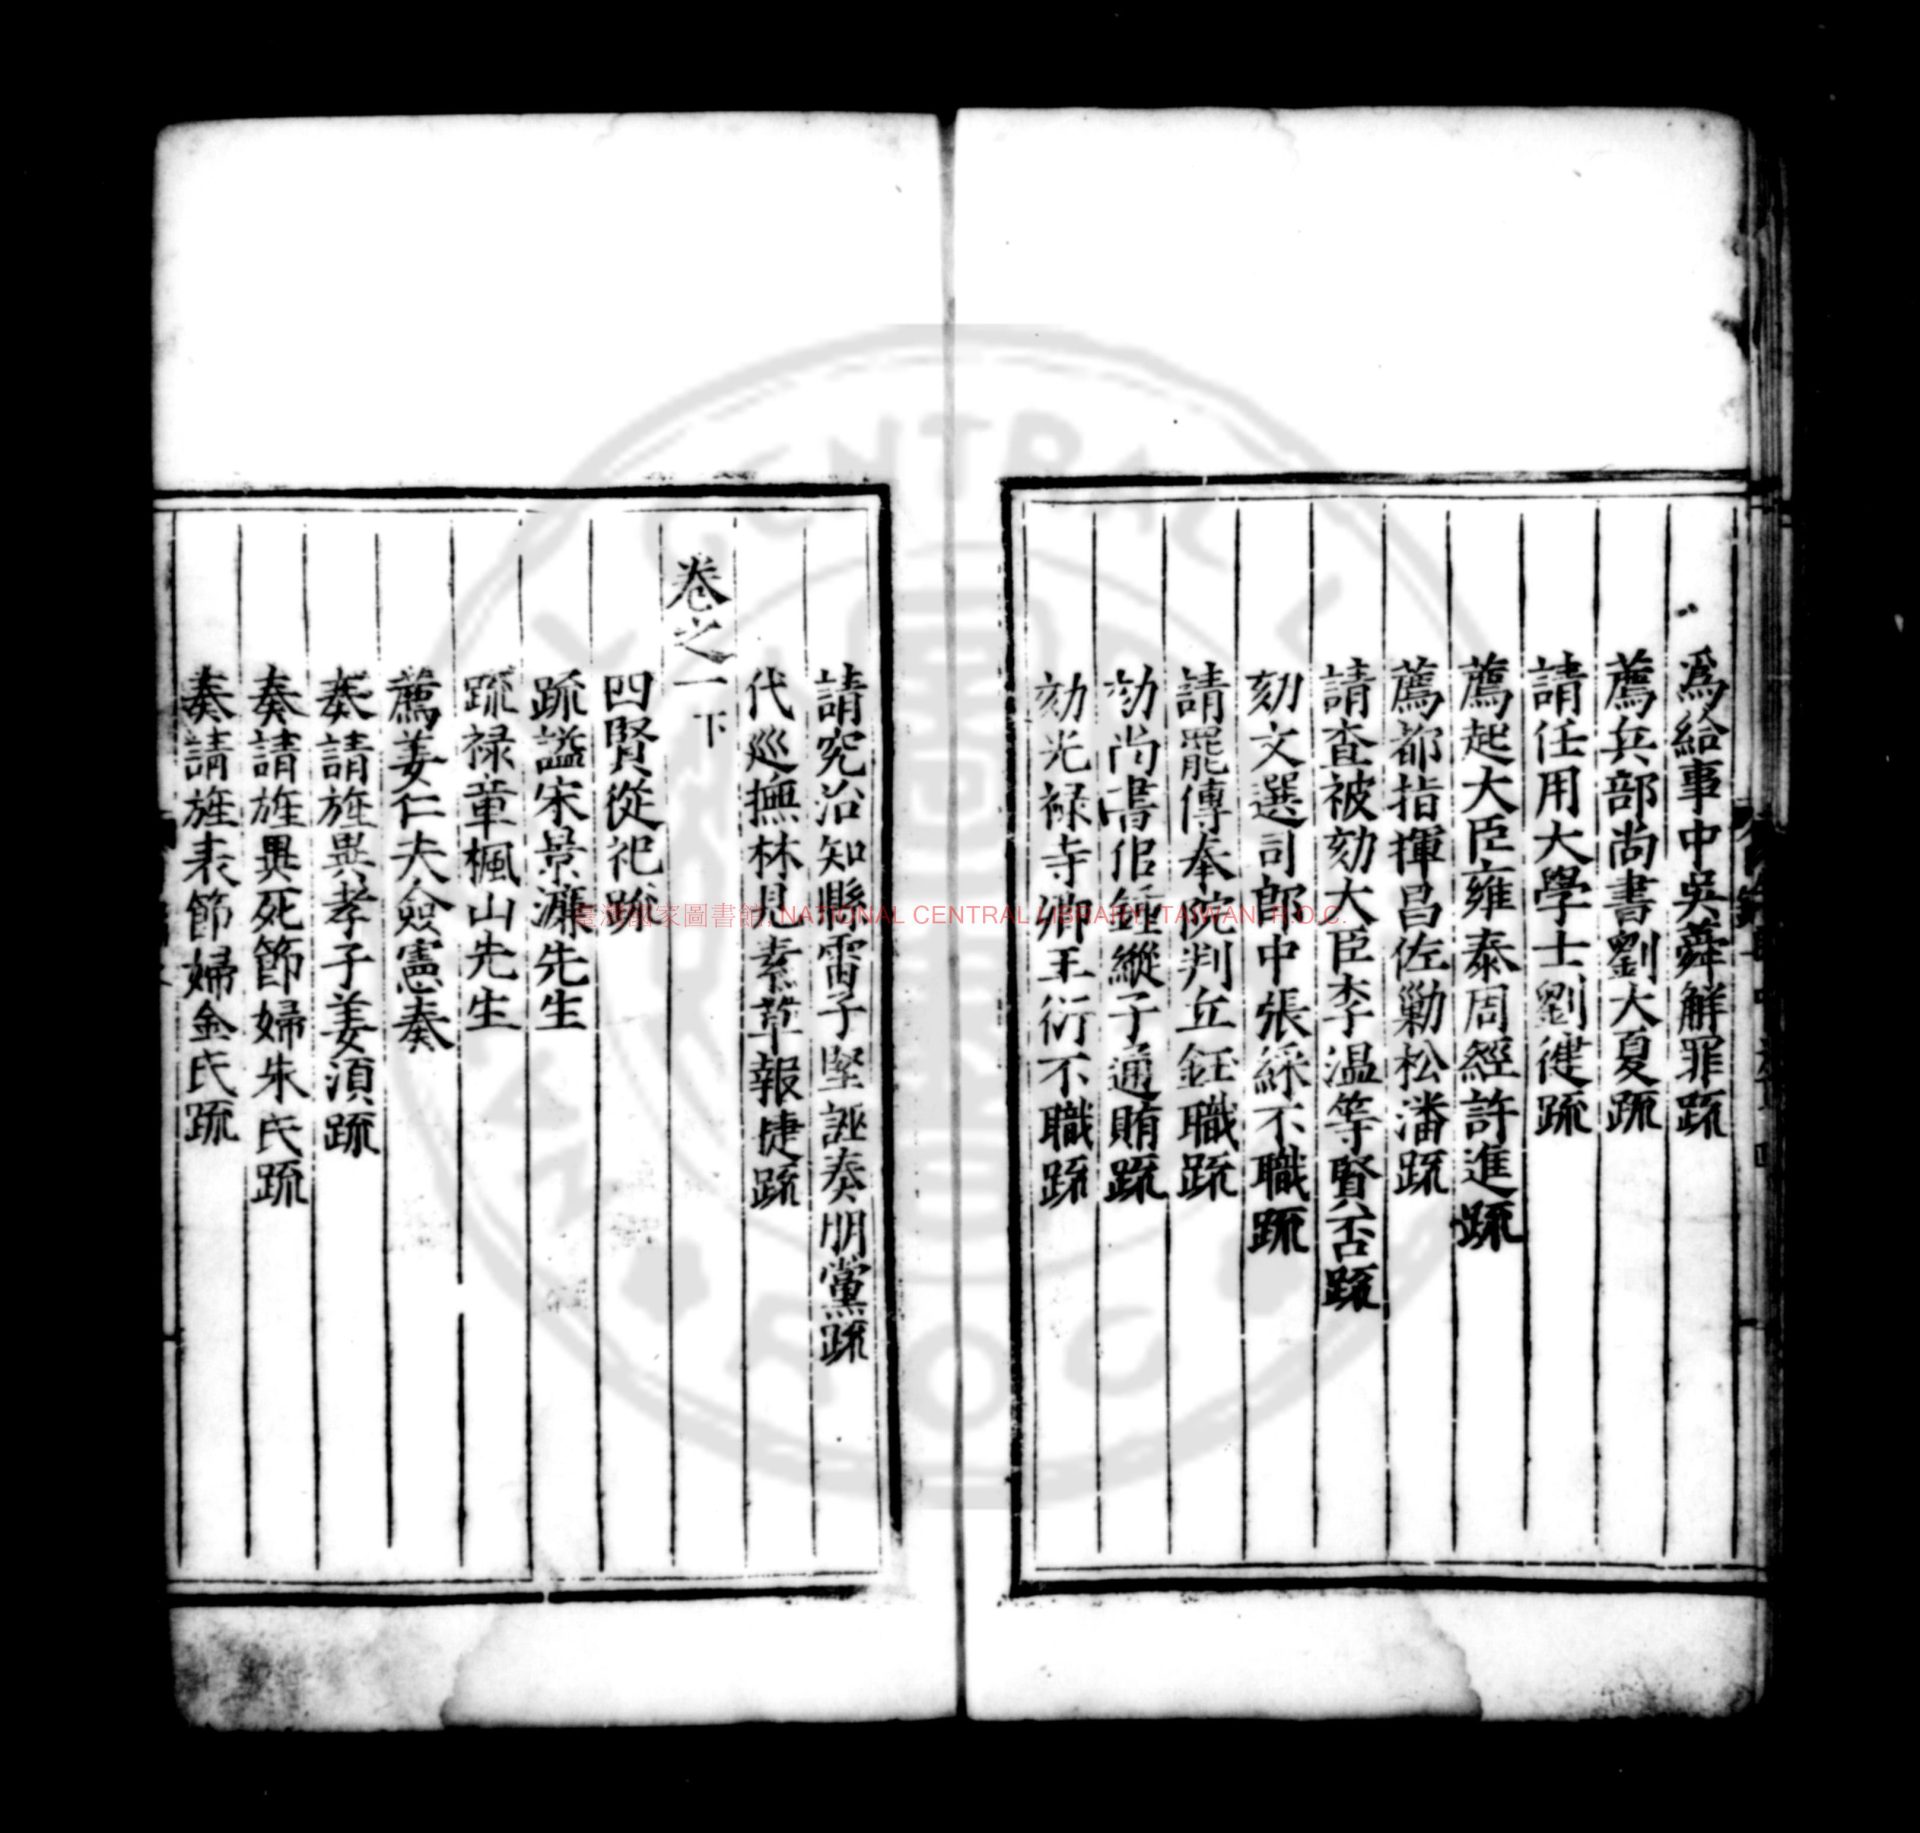 為給事中吳蕣觧罪疏
薦兵部尚書劉大夏疏
請任用大學士劉健疏
薦起大臣雍泰周經許進疏
薦都指揮昌佐勦松潘疏
請查被劾大臣李溫等賢否疏
劾文選司郎中張綵不職疏
請罷傳奉院判丘鈺職疏
劾尚書佀鍾縱子通賄疏
劾光禄寺卿王衍不職疏
請究治知縣雷子堅誣奏朋黨疏
代巡撫林見素草報捷疏
卷之一下
四賢從祀疏
疏謚宋景濂先生
疏禄章楓山先生
薦姜仁夫僉憲奏
奏請旌異孝子姜湏疏
奏請旌異死節婦朱氏疏
奏請旌表節婦金氏疏
臺灣國家圖書館, NATIONAL CENTRAL LIBRARY, TAIWAN, R.O.C.